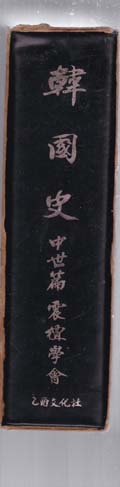 韓國史
中世篇 震檀學會
乙酉文化社